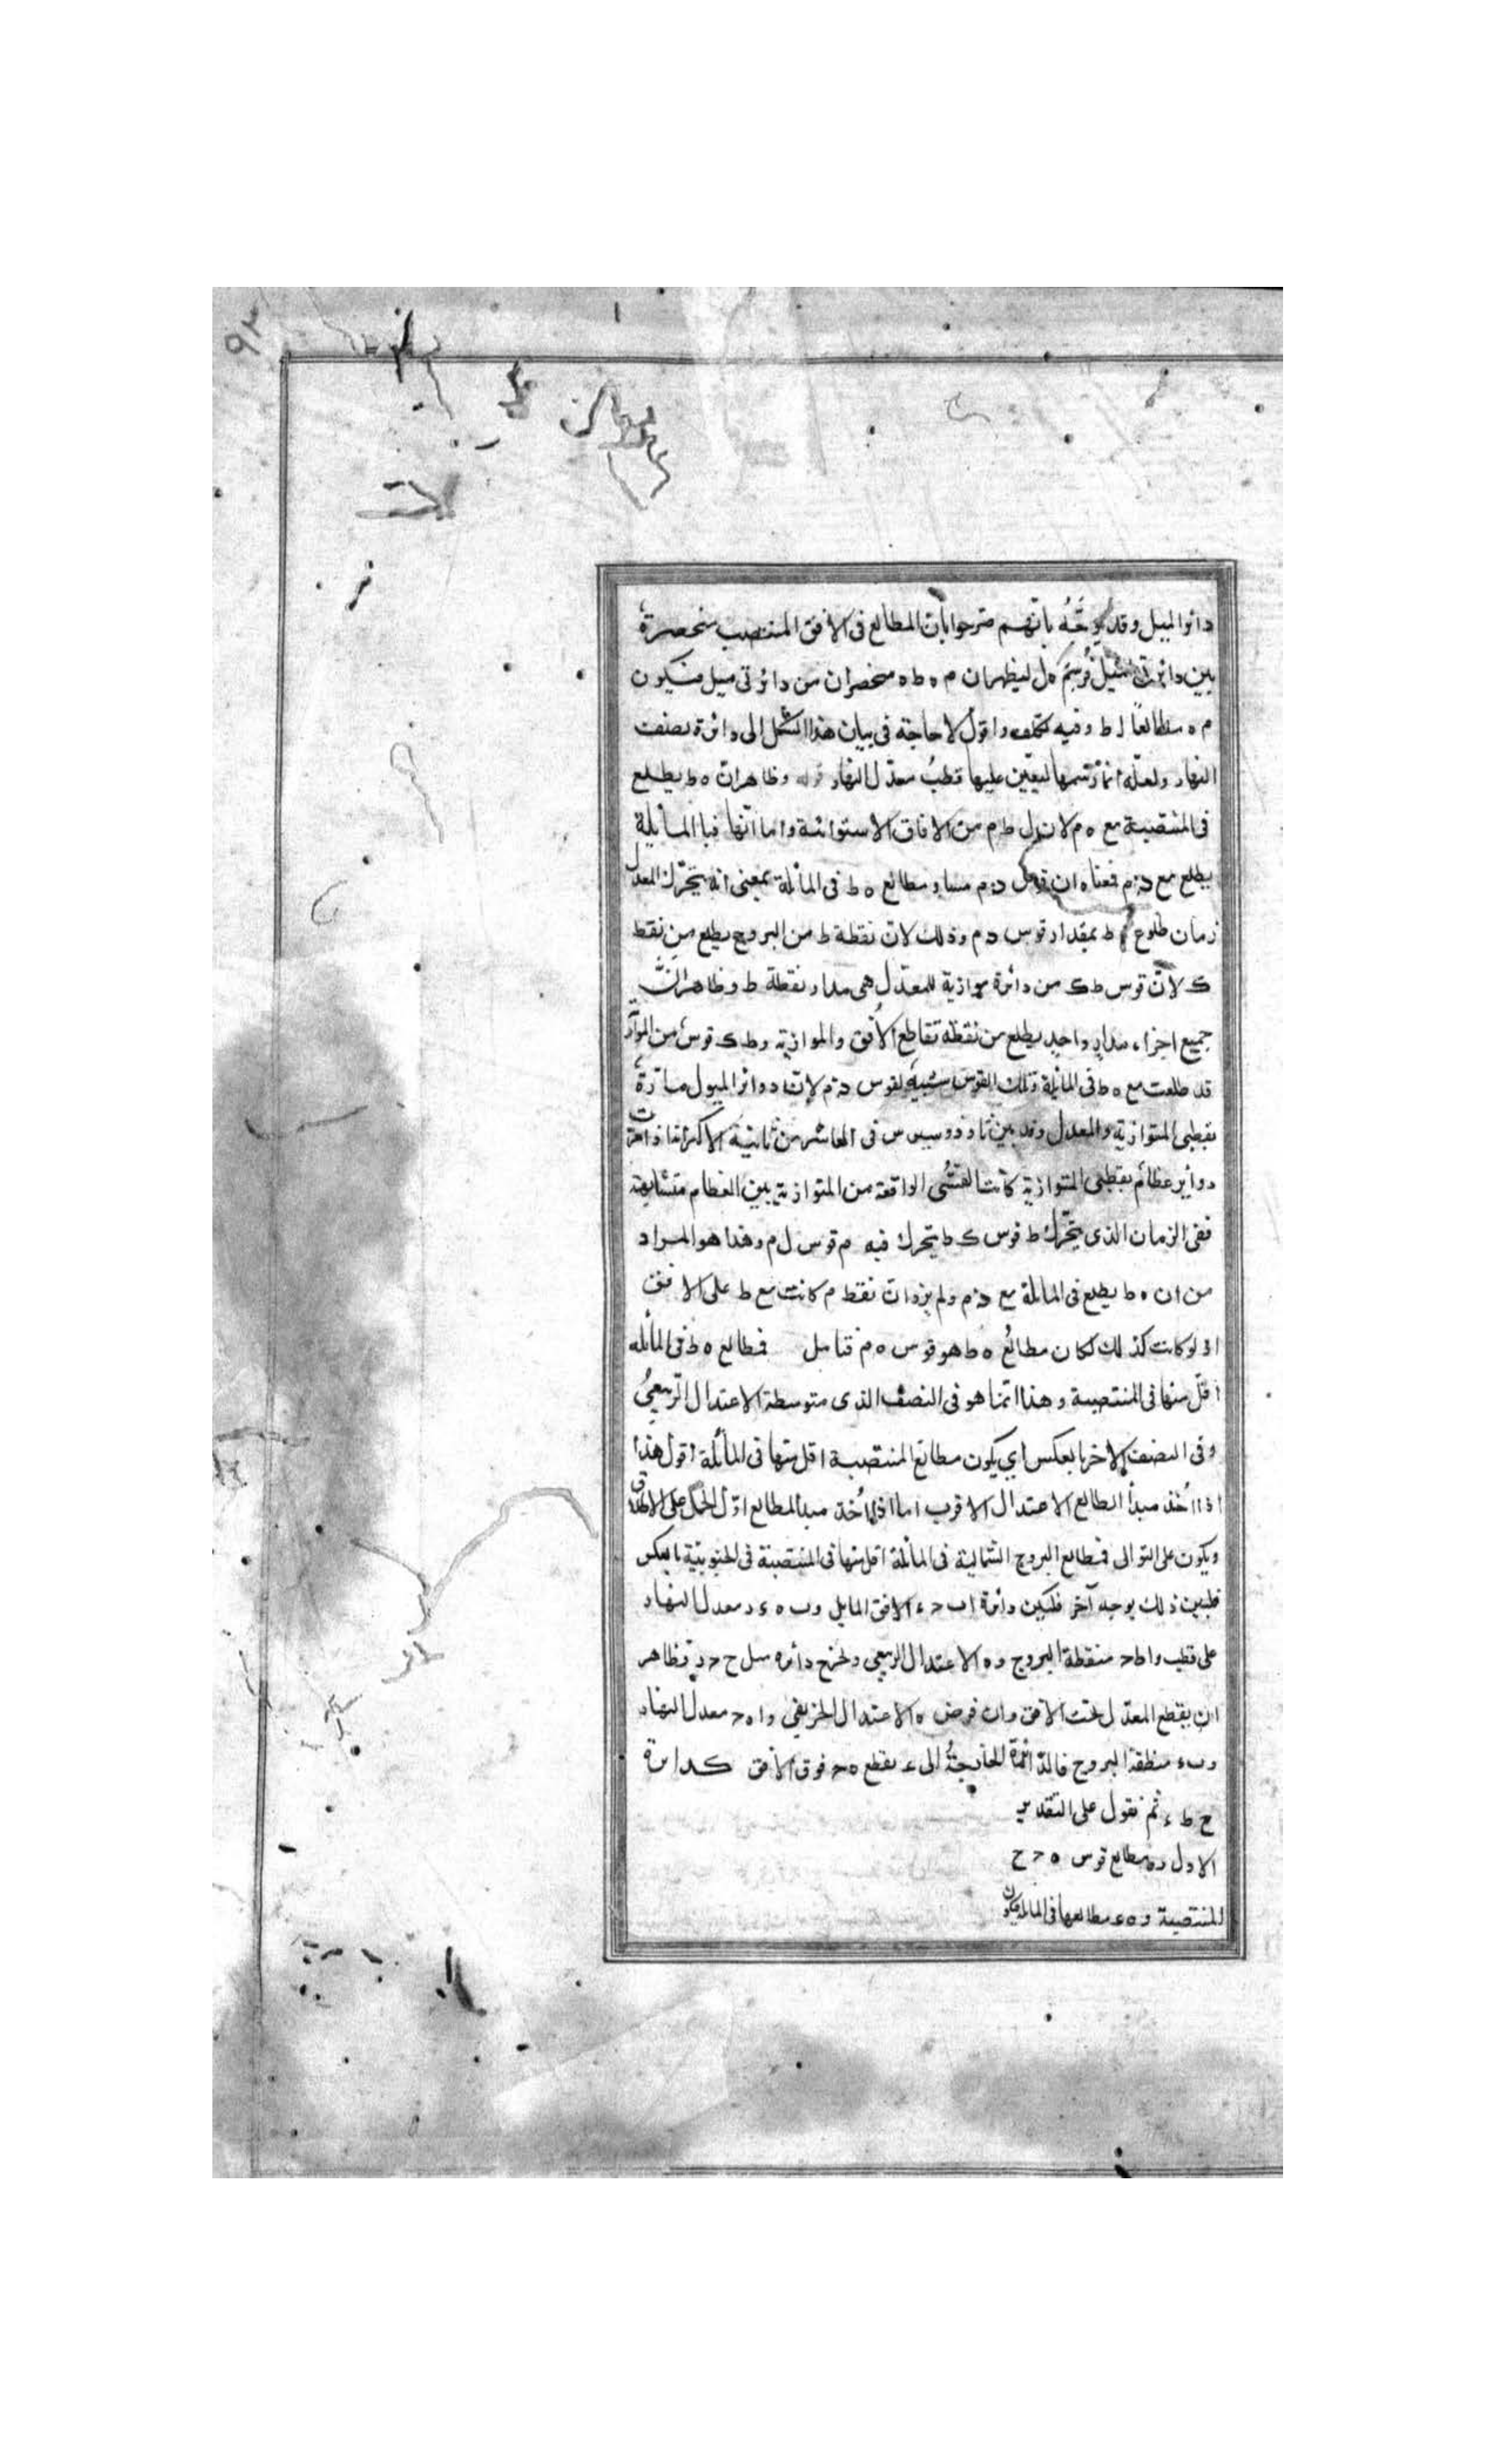 دائر الميل وقد يوجَّه بانّهم صرحوا بان المطالع فى الافق المنتصب منحصرة
بين دائرتى ميل فرسم ه ل ليظهر ان م ه ط ه منحصران من دائرتى ميل فيكون
م ه مطالعًا ل ط ه وفيه تكلف واقول لا حاجة فى بيان هذا الشكل الى دائرة نصف
النهار ولعلّه انما رسمها ليعيّن عليها قطبُ معدّل النهار قوله وظاهر انّ ه ط يطلع
فى المنتصبة مع ه م لان ل ط م من الافاق الاستوائية واما انّها فى المائلة
يطلع مع د م فمعناه ان قوس د م مساو مطالع ه ط فى المائلة بمعنى انه يتحرّك المعدل
زمان طلوع ه ط بمقدار قوس د م وذلك لانّ نقطة ط من البروج يطلع من نقط
ك لانّ قوس ط ك من دائرة موازية للمعدّل هى مدار نقطة ط وظاهر انَّ
جميع اجزاء مدار واحد يطلع من نقطة تقاطع الافق والموازية وط ك قوس من الموازية
قد طلعت مع ه ط فى المائلة وتلك القوس شبيهة لقوس د م لانّ دوائر الميول مارّة
بقطبى المتوازية والمعدل وقد بين ثاوذوسيوس فى العاشر من ثانية الاكر انها اذا مرّت
دوائر عظام بقطبى المتوازية كانت القسىُّ الواقعة من المتوازية بين العظام متشابهة
ففى الزمان الذى يتحرّك ط قوس ك ط يتحرك فيه م قوس ل م وهذا هو المراد
من ان ه ط يطلع فى المائلة مع د م ولم يرد انّ نقط م كانت مع ط على الافق
اذ لو كانت كذلك لكان مطالعُ ه ط هو قوس ه م فتامل فمطالع ه ط فى المائله
اقلّ منها فى المنتصبة وهذا انّما هو فى النصف الذى متوسطة الاعتدال الربيعىُّ
وفى النصف الاخر بالعكس اي يكون مطالع المنتصبة اقل منها فى المائلة اقول هذا
اذا اُخذ مبدأ المطالع الاعتدال الاقرب اما اذا اُخذ مبدأ المطالع اوّل الحمل على الاطلاق
ويكون على التوالى فمطالع البروج الشمالية فى المائلة اقل منها فى المنتصبة فى الجنوبيّة بالعكس
فلنبين ذلك بوجه آخر فليكن دائرة ا ب ح ء الافق المايل وب ه ء د معدل النهار
على قطب و ا ط ح منقطة البروج و ه الاعتدال الربيعى ولنخرج دائره ميل ح ح د فظاهر
ان يقطع المعدّل تحت الافق وان فرض ه الاعتدال الخريفى و ا ه ح معدل النهار
وب ء منطقة البروج فالدّائرة الخارجةُ الى ء يقطع ه ح فوق الافق كدائرة
ح ط ء ثم نقول على التقدير
الاول ره مطالع قوس ه ح ح
للمنتصبة و ه ء مطالعها فى المائلة فيكون